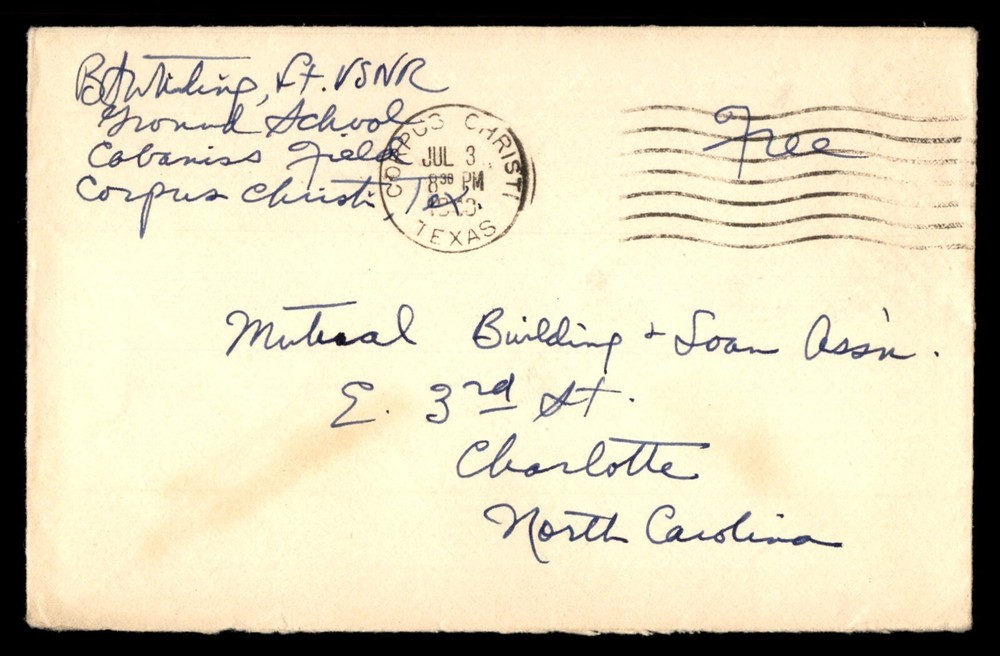 B H Whiting, Lt. USNR
Ground School
Cabaniss Field
Corpus Christi Tex.
CORPUS CHRISTI
JUL 3
8 30 PM
TEXAS
1
Free
Mutual Building + Loan Ass'n.
E. 3rd St.
Charlotte
North Carolina